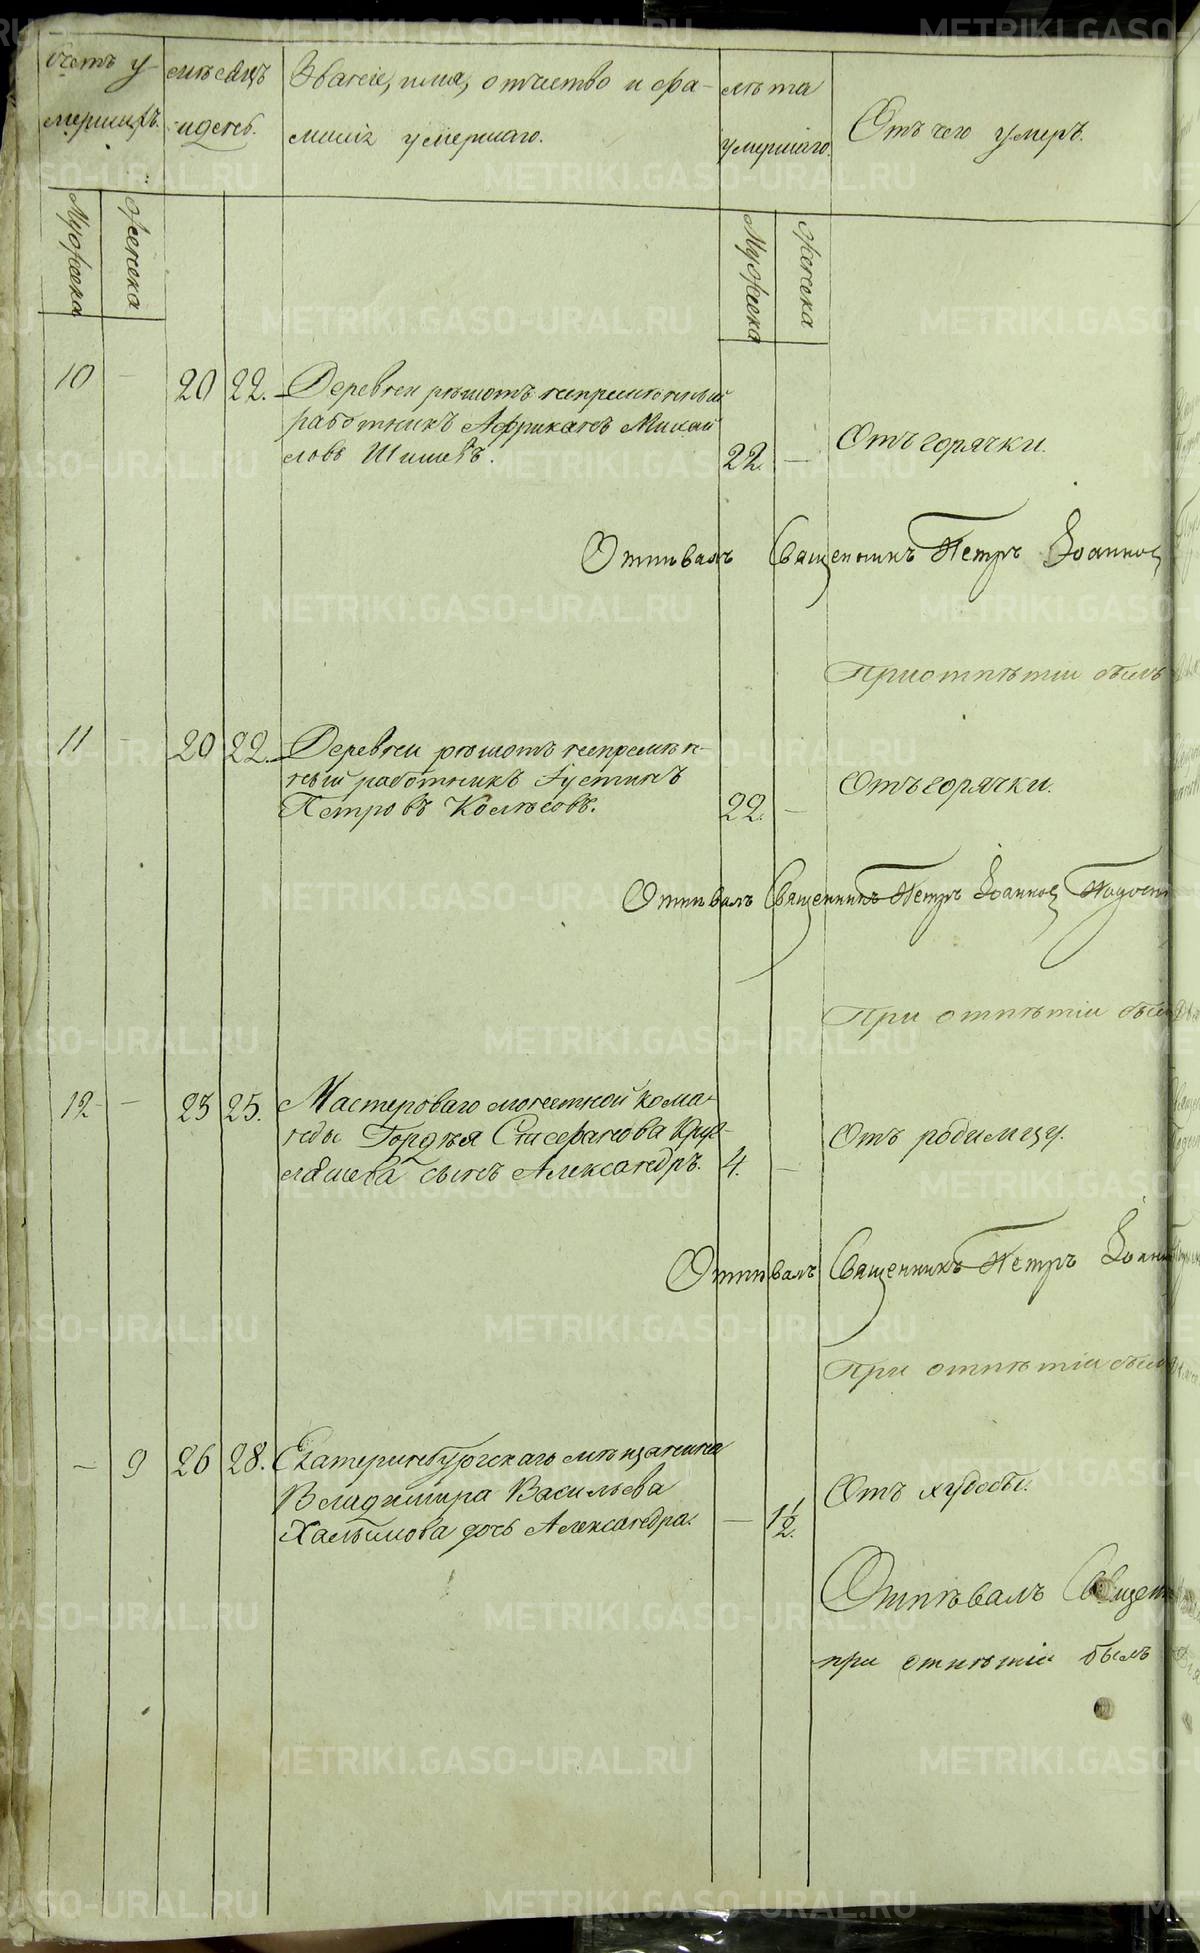 Счетъ у-
мершихъ.
мѣсяцъ
и день.
Званіе, имя, отчество и фа-
милія умершаго.
лѣта
умершаго.
Отъ чего умеръ.
Мужеска
Женска
Мужеска
Женска
10 — 20 22. Деревни рѣшотъ непремѣнный
работникъ Африканъ Михай
ловъ Шишевъ.
22. —
Отъ горячки.
Отпѣвалъ Священникъ Петръ Іоанно
При отпѣтіи былъ
11 — 20 22. Деревни рѣшотъ непремѣн-
ный работникъ Іустинъ
Петровъ Колѣсовъ.
22. —
Отъ горячки.
Отпѣвалъ Священникъ Петръ Іоанно
При отпѣтіи был
12 — 23 25. Мастероваго монетной коман-
ды Гордѣя Стефанова
сынъ Александръ.
4. —
Отъ родимцу.
Отпѣвалъ Священникъ Петръ Іоанн
При отпѣтіи был
— 9 26 28. Екатеринбургскаго мѣщанина
Владимира Васильева
Халымова дочь Александра.
— 1 1/2.
Отъ худобы.
Отпѣвалъ Священ
при отпѣтіи былъ
METRIKI.GASO-URAL.RU